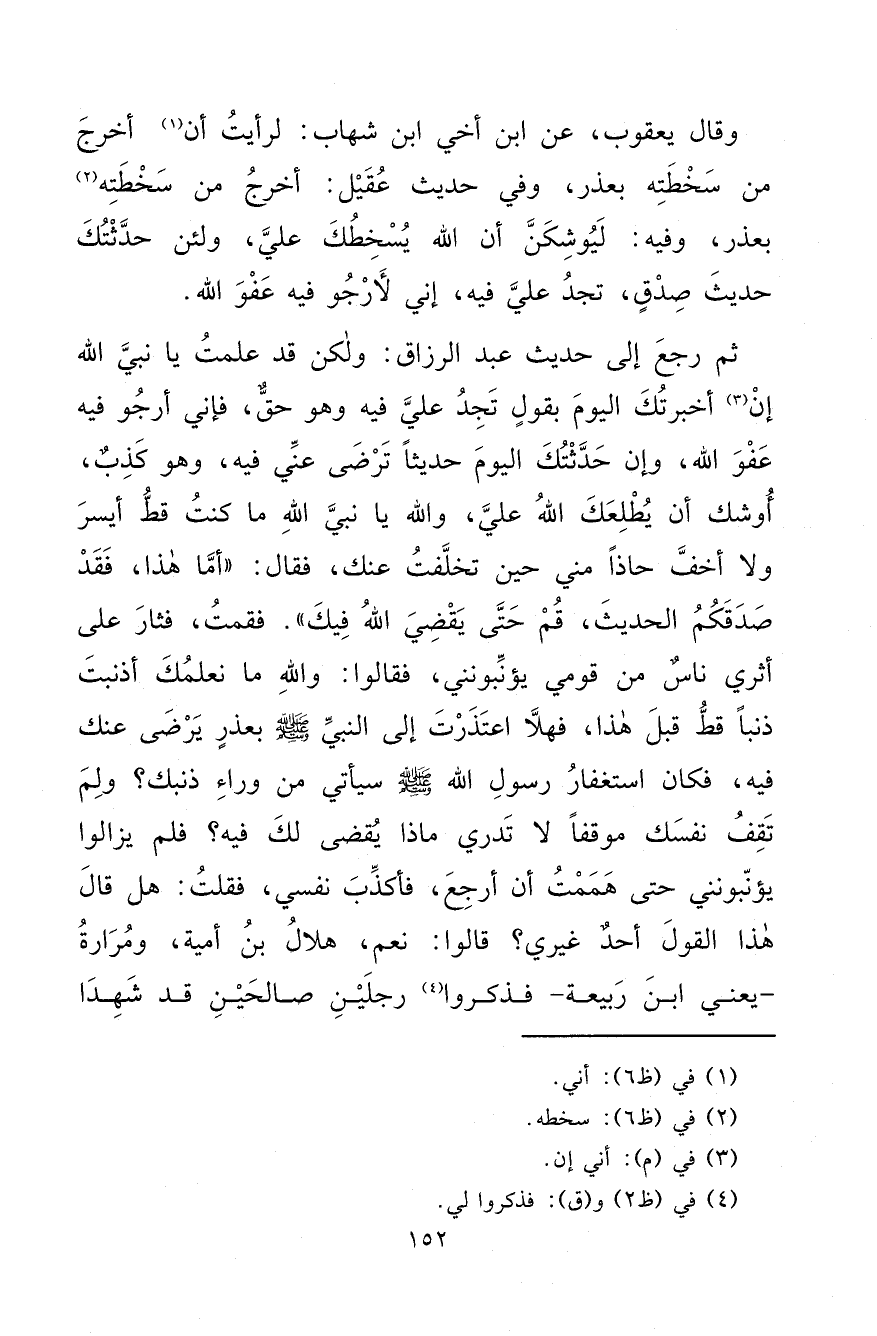 وقال يعقوب، عن ابن أخي ابن شهاب: لرأيتُ أن(١) أخرجَ
من سَخْطَتِه بعذر، وفي حديث عُقَيْل: أخرجُ من سَخْطَتِه(٢)
بعذر، وفيه: لَيُوشِكَنَّ أن الله يُسْخِطُكَ عليَّ، ولئن حدَّثْتُكَ
حديثَ صِدْقٍ، تجدُ عليَّ فيه، إني لَأَرْجُو فيه عَفْوَ الله.
ثم رجعَ إلى حديث عبد الرزاق: ولٰكن قد علمتُ يا نبيَّ الله
إنْ(٣) أخبرتُكَ اليومَ بقولٍ تَجِدُ عليَّ فيه وهو حقٌّ، فإني أرجُو فيه
عَفْوَ الله، وإن حَدَّثْتُكَ اليومَ حديثاً تَرْضَى عنِّي فيه، وهو كَذِبٌ،
أُوشك أن يُطْلِعَكَ اللهُ عليَّ، والله يا نبيَّ اللهِ ما كنتُ قطُّ أيسرَ
ولا أخفَّ حاذاً مني حين تخلَّفتُ عنك، فقال: «أمَّا هٰذا، فَقَدْ
صَدَقَكُمُ الحديثَ، قُمْ حَتَّى يَقْضِيَ اللهُ فِيكَ». فقمتُ، فثارَ على
أثري ناسٌ من قومي يؤنِّبونني، فقالوا: واللهِ ما نعلمُكَ أذنبتَ
ذنباً قطُّ قبلَ هٰذا، فهلاَّ اعتَذَرْتَ إلى النبيِّ ﷺ بعذرٍ يَرْضَى عنك
فيه، فكان استغفارُ رسولِ الله ﷺ سيأتي من وراءِ ذنبك؟ ولِمَ
تَقِفُ نفسَك موقفاً لا تَدري ماذا يُقضى لكَ فيه؟ فلم يزالوا
يؤنّبونني حتى هَمَمْتُ أن أرجِعَ، فأكذِّبَ نفسي، فقلتُ: هل قالَ
هٰذا القولَ أحدٌ غيري؟ قالوا: نعم، هلالُ بنُ أمية، ومُرَارةُ
-يعني ابنَ رَبيعة- فذكروا(٤) رجلَيْنِ صالحَيْنِ قد شَهِدَا
(١) في (ظ٦): أني.
(٢) في (ظ٦): سخطه.
(٣) في (م): أني إن.
(٤) في (ظ٢) و(ق): فذكروا لي.
١٥٢